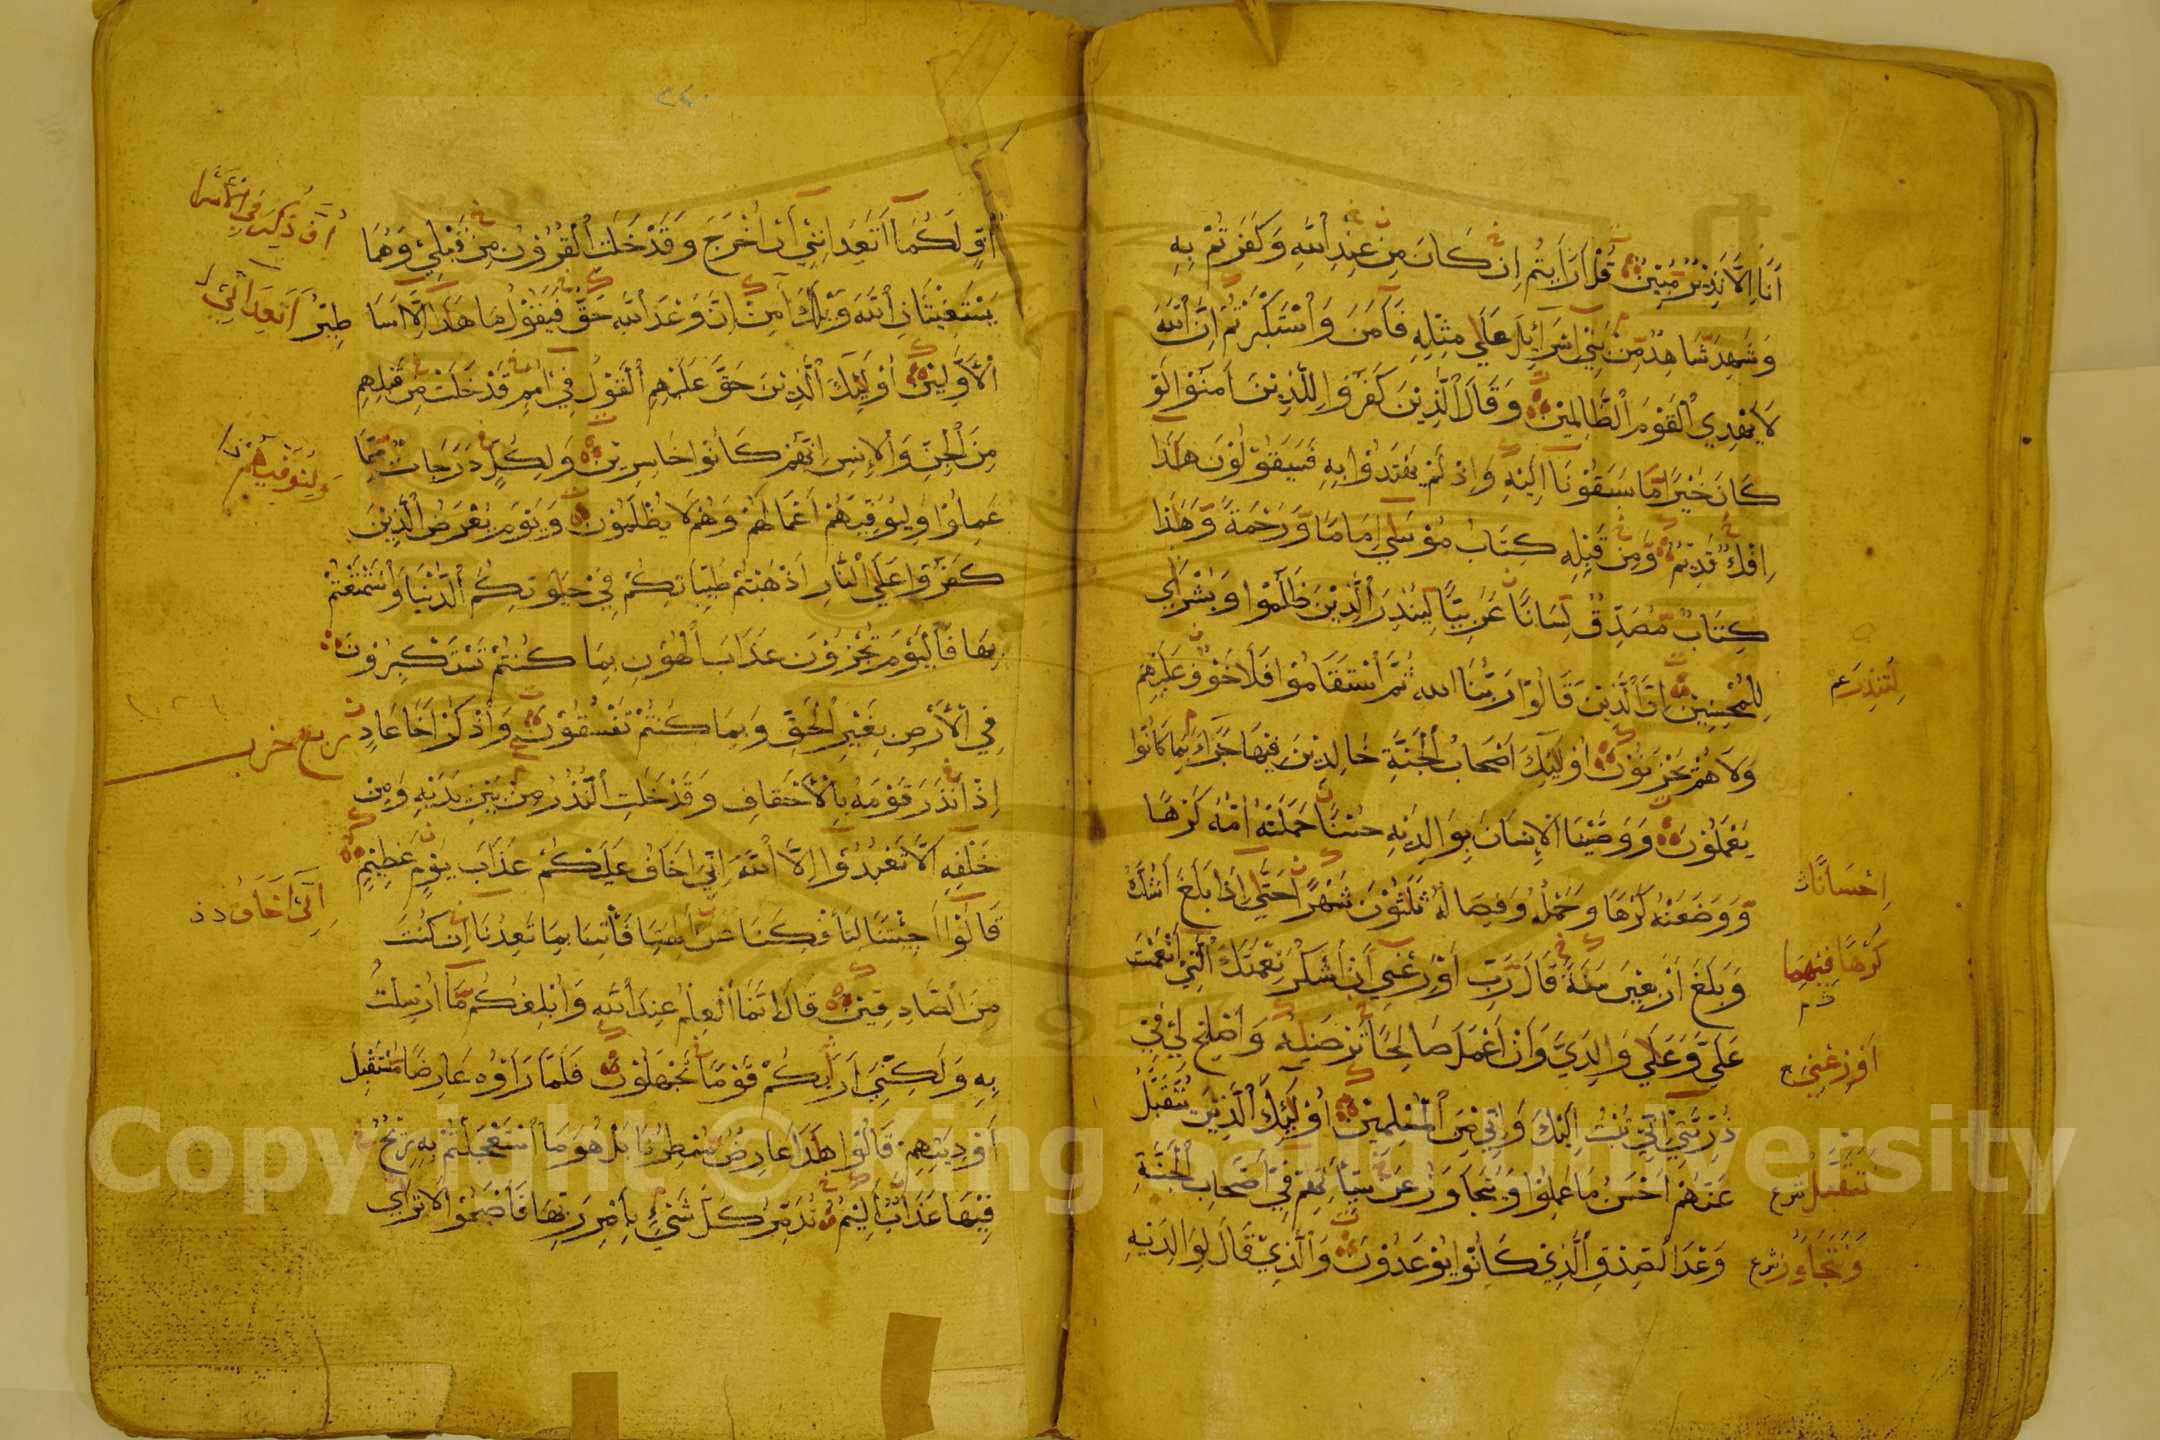 أَنَا إِلَّا نَذِيرٌ مُبِينٌ قُلْ أَرَأَيْتُمْ إِنْ كَانَ مِنْ عِنْدِ اللَّهِ وَكَفَرْتُمْ بِهِ
وَشَهِدَ شَاهِدٌ مِنْ بَنِي إِسْرَائِيلَ عَلَى مِثْلِهِ فَآمَنَ وَاسْتَكْبَرْتُمْ إِنَّ اللَّهَ
لَا يَهْدِي الْقَوْمَ الظَّالِمِينَ وَقَالَ الَّذِينَ كَفَرُوا لِلَّذِينَ آمَنُوا لَوْ
كَانَ خَيْرًا مَا سَبَقُونَا إِلَيْهِ وَإِذْ لَمْ يَهْتَدُوا بِهِ فَسَيَقُولُونَ هَذَا
إِفْكٌ قَدِيمٌ وَمِنْ قَبْلِهِ كِتَابُ مُوسَى إِمَامًا وَرَحْمَةً وَهَذَا
كِتَابٌ مُصَدِّقٌ لِسَانًا عَرَبِيًّا لِيُنْذِرَ الَّذِينَ ظَلَمُوا وَبُشْرَى
لِلْمُحْسِنِينَ إِنَّ الَّذِينَ قَالُوا رَبُّنَا اللَّهُ ثُمَّ اسْتَقَامُوا فَلَا خَوْفٌ عَلَيْهِمْ
لِتُنْذِرَ عم
وَلَا هُمْ يَحْزَنُونَ أُولَئِكَ أَصْحَابُ الْجَنَّةِ خَالِدِينَ فِيهَا جَزَاءً بِمَا كَانُوا
يَعْمَلُونَ وَوَصَّيْنَا الْإِنْسَانَ بِوَالِدَيْهِ حُسْنًا حَمَلَتْهُ أُمُّهُ كَرْهًا
وَوَضَعَتْهُ كَرْهًا وَحَمْلُهُ وَفِصَالُهُ ثَلَثُونَ شَهْرًا حَتَّى إِذَا بَلَغَ أَشُدَّهُ
إِحْسَانًا ث
وَبَلَغَ أَرْبَعِينَ سَنَةً قَالَ رَبِّ أَوْزِعْنِي أَنْ أَشْكُرَ نِعْمَتَكَ الَّتِي أَنْعَمْتَ
كُرْهًا فِيهِمَا
ث م
عَلَيَّ وَعَلَى وَالِدَيَّ وَأَنْ أَعْمَلَ صَالِحًا تَرْضَيهُ وَأَصْلِحْ لِي فِي
أَوْزِعْنِيَ ج
ذُرِّيَّتِي إِنِّي تُبْتُ إِلَيْكَ وَإِنِّي مِنَ الْمُسْلِمِينَ أُولَئِكَ الَّذِينَ يُتَقَبَّلُ
عَنْهُمْ أَحْسَنُ مَا عَمِلُوا وَيُتَجَاوَزُ عَنْ سَيِّئَاتِهِمْ فِي أَصْحَابِ الْجَنَّةِ
نَتَقَبَّلُ شرع
وَعْدَ الصِّدْقِ الَّذِي كَانُوا يُوعَدُونَ وَالَّذِي قَالَ لِوَالِدَيْهِ
وَنَتَجَاوَزُ شرع
٢٤٠
أُفٍّ لَكُمَا أَتَعِدَانِنِي أَنْ أُخْرَجَ وَقَدْ خَلَتِ الْقُرُونُ مِنْ قَبْلِي وَهُمَا
أُفٍّ ذُكِرَ فِي الْأَسْرَا
يَسْتَغِيثَانِ اللَّهَ وَيْلَكَ آمِنْ إِنَّ وَعْدَ اللَّهِ حَقٌّ فَيَقُولُ مَا هَذَا إِلَّا أَسَا طِيرُ
أَتَعِدَانِّي ل
الْأَوَّلِينَ أُولَئِكَ الَّذِينَ حَقَّ عَلَيْهِمُ الْقَوْلُ فِي أُمَمٍ قَدْ خَلَتْ مِنْ قَبْلِهِمْ
مِنَ الْجِنِّ وَالْإِنْسِ إِنَّهُمْ كَانُوا خَاسِرِينَ وَلِكُلٍّ دَرَجَاتٌ مِمَّا
وَلِنُوَفِّيَهُمْ
عَمِلُوا وَلِيُوَفِّيَهُمْ أَعْمَالَهُمْ وَهُمْ لَا يُظْلَمُونَ وَيَوْمَ يُعْرَضُ الَّذِينَ
كَفَرُوا عَلَى النَّارِ أَذْهَبْتُمْ طَيِّبَاتِكُمْ فِي حَيَوتِكُمُ الدُّنْيَا وَاسْتَمْتَعْتُمْ
بِهَا فَالْيَوْمَ تُجْزَوْنَ عَذَابَ الْهُونِ بِمَا كُنْتُمْ تَسْتَكْبِرُونَ
فِي الْأَرْضِ بِغَيْرِ الْحَقِّ وَبِمَا كُنْتُمْ تَفْسُقُونَ وَاذْكُرْ أَخَا عَادٍ
ربع حزب
إِذْ أَنْذَرَ قَوْمَهُ بِالْأَحْقَافِ وَقَدْ خَلَتِ النُّذُرُ مِنْ بَيْنِ يَدَيْهِ وَمِنْ
خَلْفِهِ أَلَّا تَعْبُدُوا إِلَّا اللَّهَ إِنِّي أَخَافُ عَلَيْكُمْ عَذَابَ يَوْمٍ عَظِيمٍ
إِنِّيَ أَخَافُ
قَالُوا أَجِئْتَنَا لِتَأْفِكَنَا عَنْ آلِهَتِنَا فَأْتِنَا بِمَا تَعِدُنَا إِنْ كُنْتَ
مِنَ الصَّادِقِينَ قَالَ إِنَّمَا الْعِلْمُ عِنْدَ اللَّهِ وَأُبَلِّغُكُمْ مَا أُرْسِلْتُ
بِهِ وَلَكِنِّي أَرَاكُمْ قَوْمًا تَجْهَلُونَ فَلَمَّا رَأَوْهُ عَارِضًا مُسْتَقْبِلَ
أَوْدِيَتِهِمْ قَالُوا هَذَا عَارِضٌ مُمْطِرُنَا بَلْ هُوَ مَا اسْتَعْجَلْتُمْ بِهِ رِيحٌ
فِيهَا عَذَابٌ أَلِيمٌ تُدَمِّرُ كُلَّ شَيْءٍ بِأَمْرِ رَبِّهَا فَأَصْبَحُوا لَا تَرَى
Copyright © King Saud University